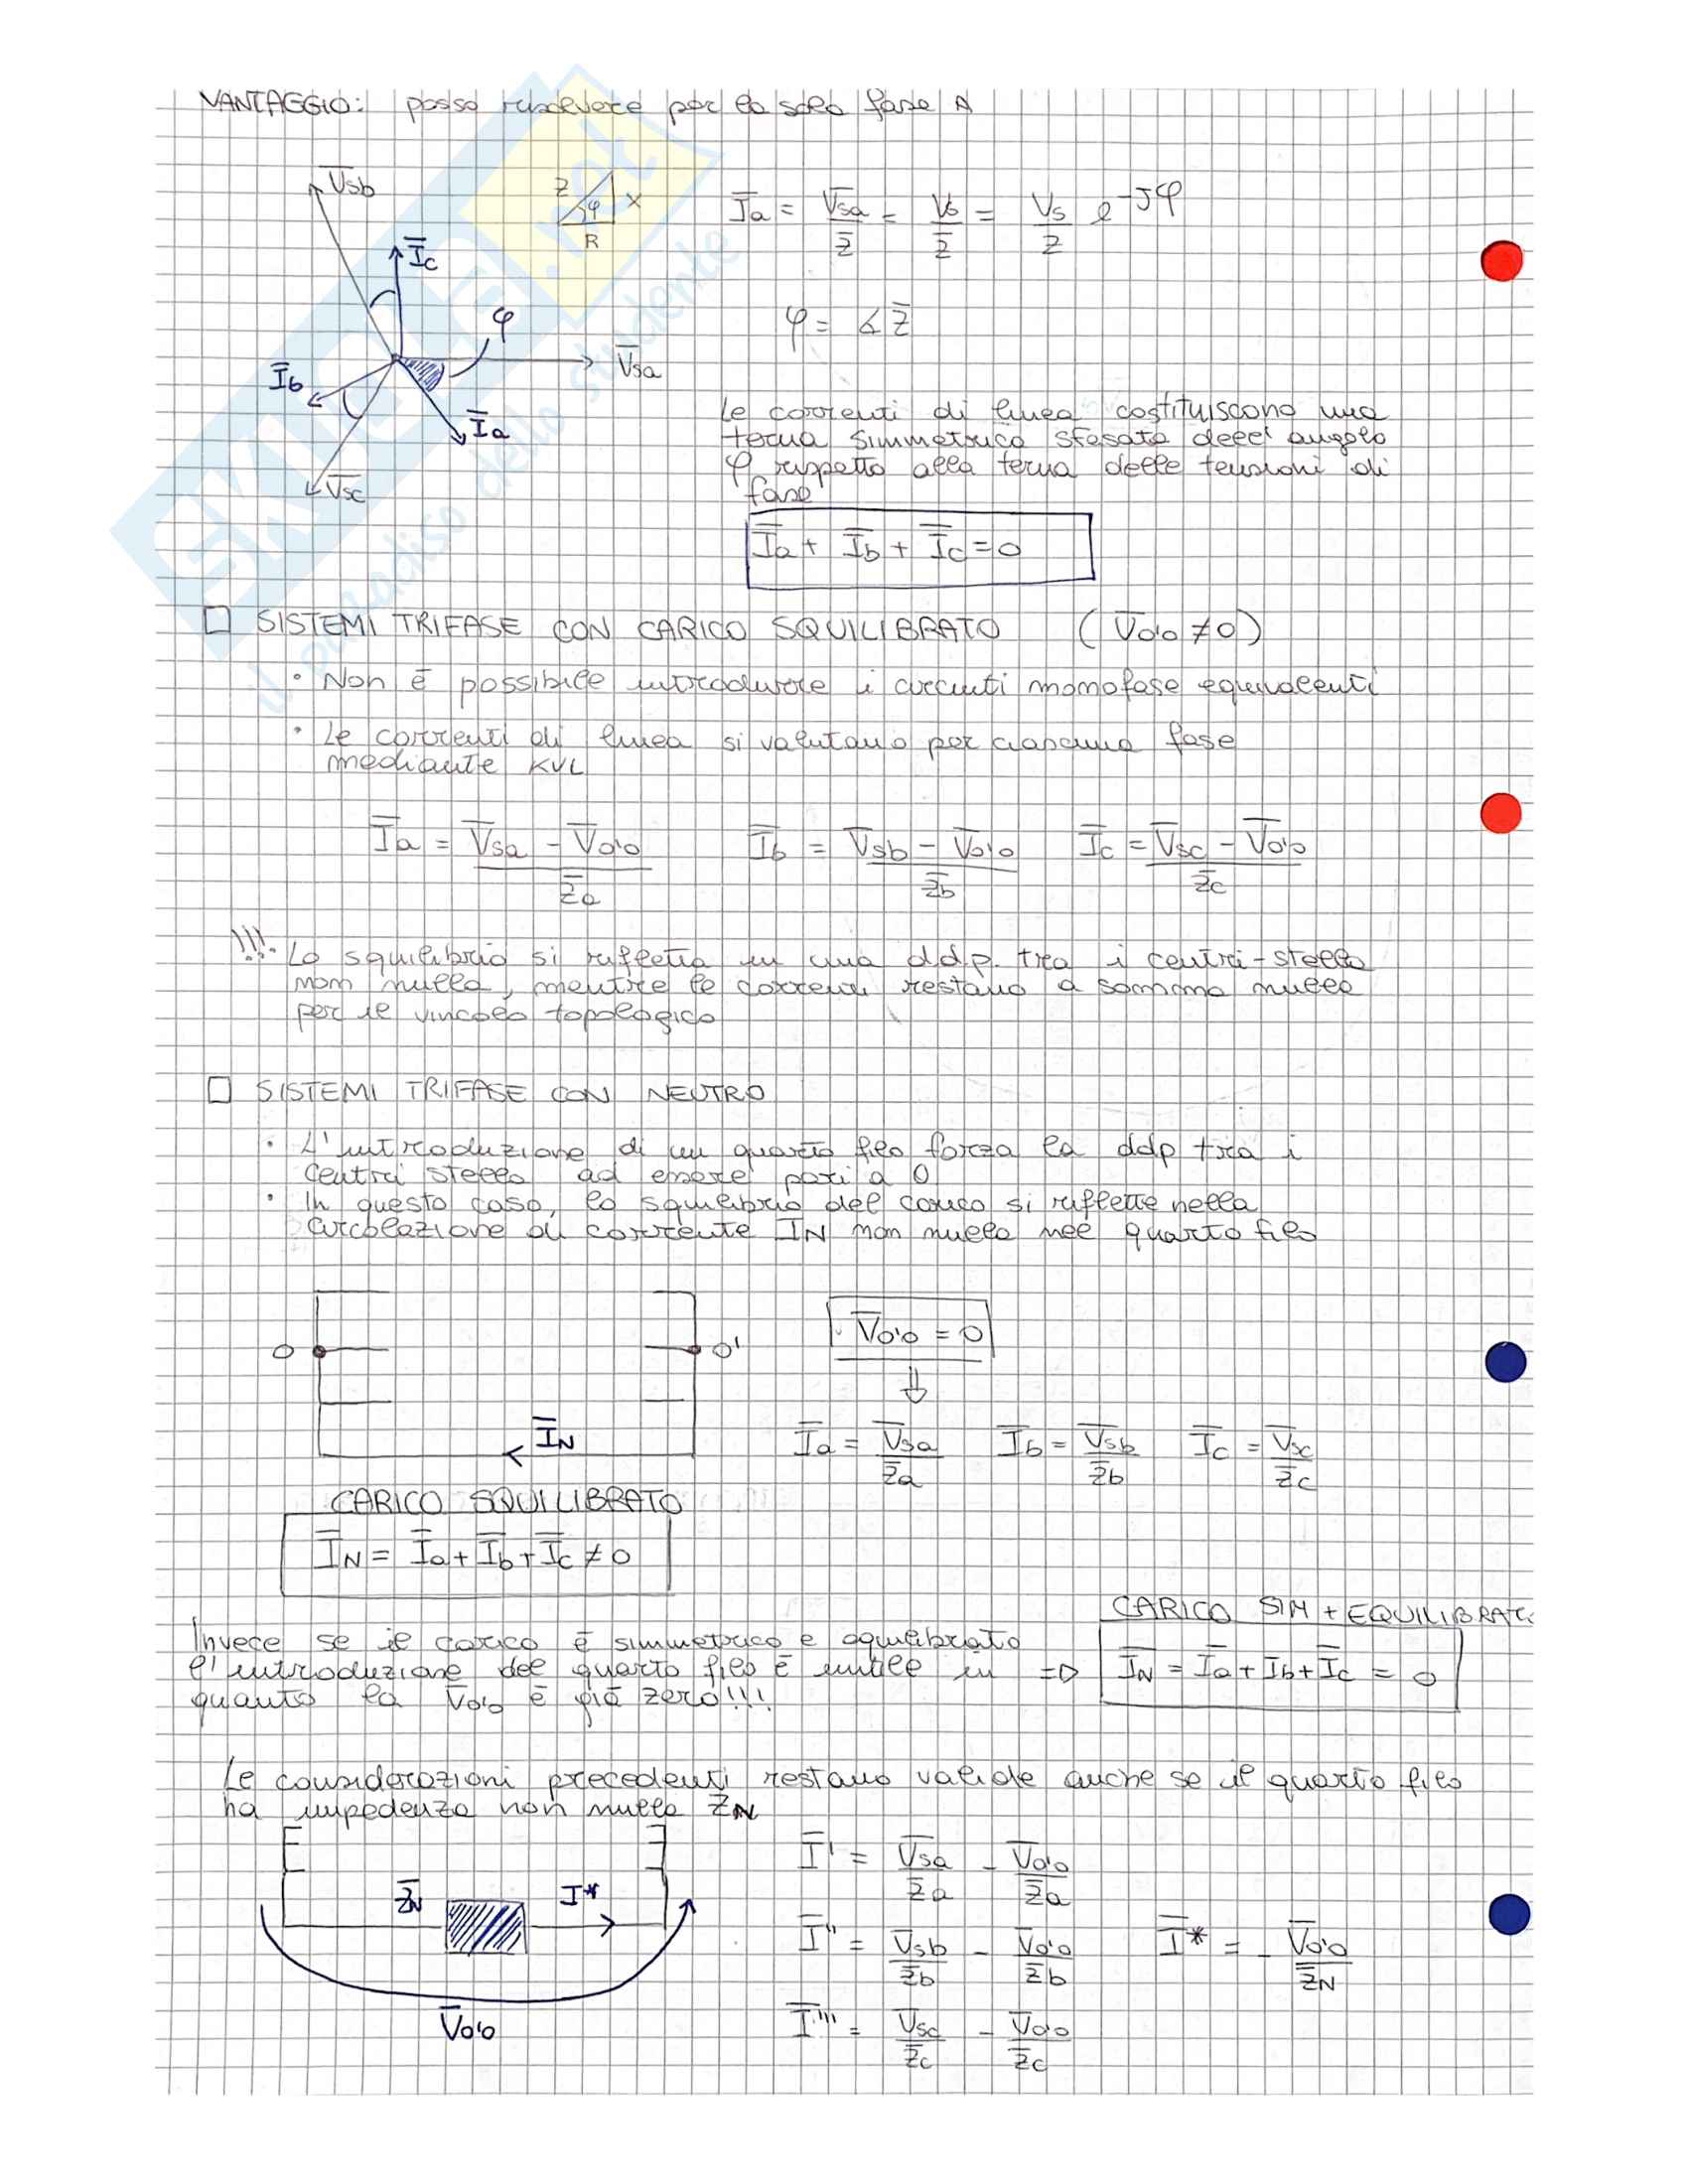 VANTAGGIO: posso risolvere per la sola fase A
V̅sb
I̅c
Z
φ
X
R
I̅a = V̅sa/Z̅ = Vs/Z̅ = Vs/Z e^-Jφ
φ
φ = ∡Z̅
V̅sa
I̅b
I̅a
V̅sc
Le correnti di linea costituiscono una
terna simmetrica sfasata dell'angolo
φ rispetto alla terna delle tensioni di
fase
I̅a + I̅b + I̅c = 0
□ SISTEMI TRIFASE CON CARICO SQUILIBRATO (V̅o'o ≠ 0)
• Non è possibile introdurre i circuiti monofase equivalenti
• Le correnti di linea si valutano per ciascuna fase
mediante KVL
I̅a = V̅sa - V̅o'o/Z̅a I̅b = V̅sb - V̅o'o/Z̅b I̅c = V̅sc - V̅o'o/Z̅c
!!!. Lo squilibrio si rifletta in una d.d.p. tra i centri-stella
non nulla, mentre le correnti restano a somma nulla
per il vincolo topologico
□ SISTEMI TRIFASE CON NEUTRO
• L'introduzione di un quarto filo forza la ddp tra i
centri stella ad essere pari a 0
• In questo caso, lo squilibrio del carico si riflette nella
circolazione di corrente IN non nulla nel quarto filo
O
O'
V̅o'o = 0
⇓
I̅N
I̅a = V̅sa/Z̅a I̅b = V̅sb/Z̅b I̅c = V̅sc/Z̅c
CARICO SQUILIBRATO
I̅N = I̅a + I̅b + I̅c ≠ 0
CARICO SIM + EQUILIBRAT.
Invece se il carico è simmetrico e equilibrato
l'introduzione del quarto filo è inutile in =D
quanto la V̅o'o è già zero!!!
I̅N = I̅a + I̅b + I̅c = 0
Le considerazioni precedenti restano valide anche se il quarto filo
ha impedenza non nulla Z̅N
Z̅N
I*
V̅o'o
I̅' = V̅sa/Z̅a - V̅o'o/Z̅a
I̅'' = V̅sb/Z̅b - V̅o'o/Z̅b I̅* = - V̅o'o/Z̅N
I̅''' = V̅sc/Z̅c - V̅o'o/Z̅c
SKUOLA.net
il paradiso dello studente